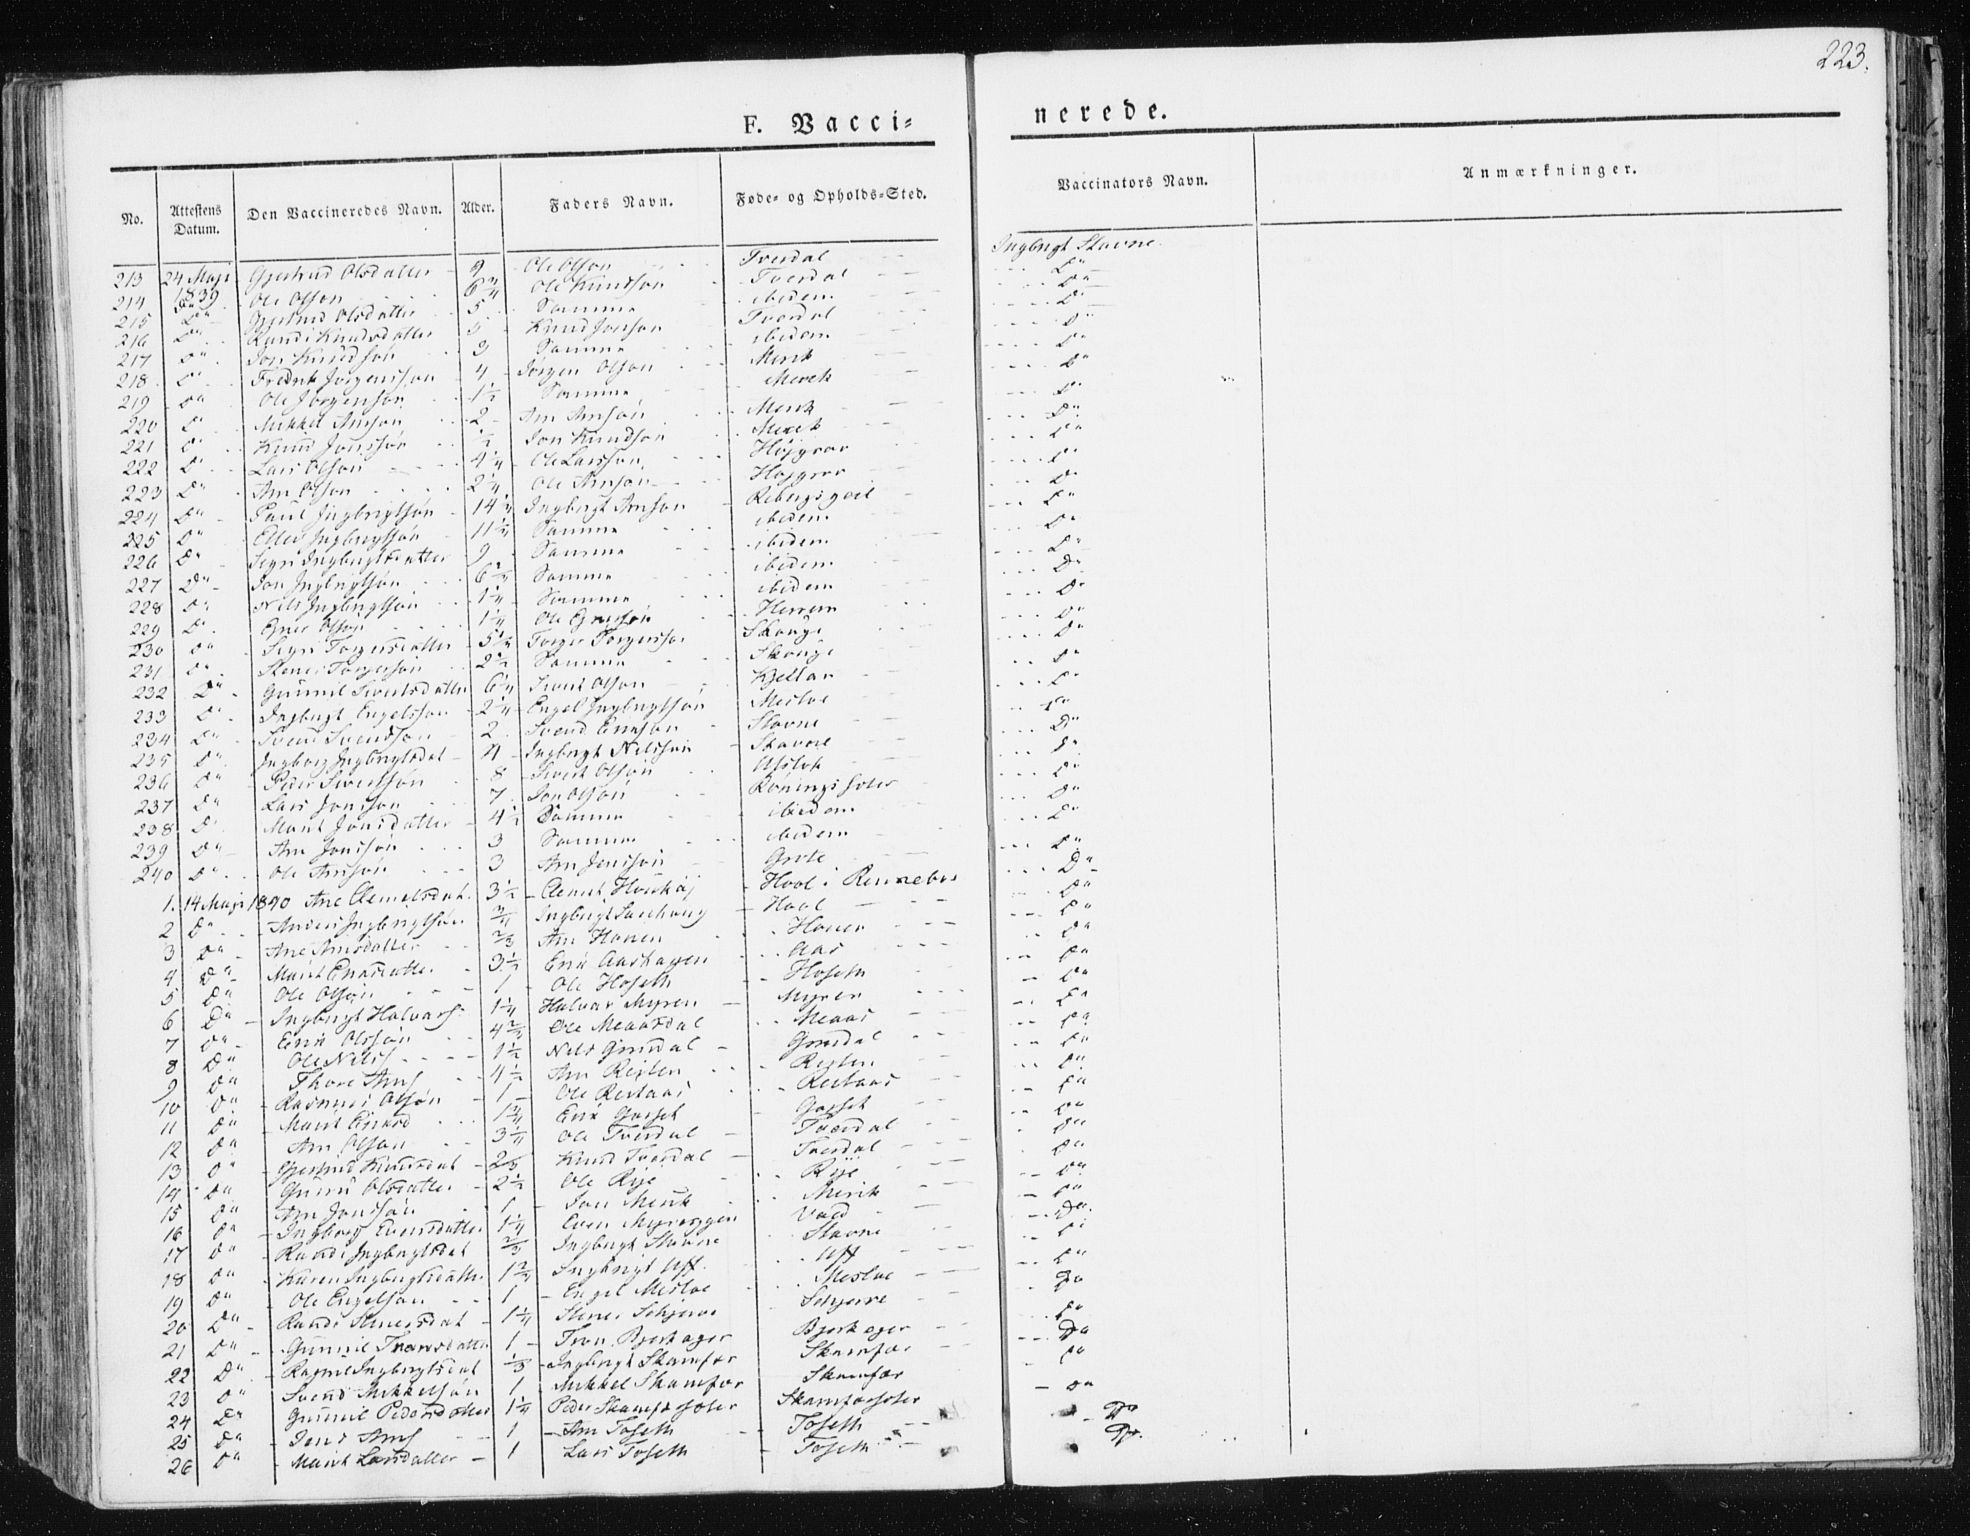 223.
F. Vacci=
nerede.
No. Attestens Datum. Den Vaccineredes Navn. Alder. Faders Navn. Føde- og Opholds-Sted. Vaccinators Navn. Anmærkninger.
213 24 Maji 1839 Gjertrud Olsdatter 9 Ole Olson Tverdal Ingbrigt Stavne
214 Do Ole Olson 6 3/4 Ole Knudson Tverdal Do
215 Do Gjertrud Olsdatter 5 Samme ibidem Do
216 Do Randi Knudsdatter 5 Knud Jonson Tverdal Do
217 Do Jon Knudson 3 Samme ibidem Do
218 Do Fredrik Jørgenson 4 Jørgen Olson Merik Do
219 Do Ole Jørgenson 1 1/2 Samme Merek Do
220 Do Mikkel Arnson 2 Arn Arnson Merik Do
221 Do Knud Jonssøn 1/2 Jon Knudson Merek Do
222 Do Lars Olson 4 1/4 Ole Larsson Højgrar Do
223 Do Arn Olson 2 1/4 Ole Arnson Højgrar Do
224 Do Paul Ingbrigtsøn 14 Ingbrigt Arnson Rebergsgeil Do
225 Do Ingbrigtsøn 11 Samme ibidem Do
226 Do Sigri Ingbrigtsdatter 9 Samme ibidem Do
227 Do Jon Ingbrigtsøn 6 Samme ibidem Do
228 Do Nils Ingbrigtsøn 1 1/4 Samme ibidem Do
229 Do Olson 1 1/4 Ole Herrem Do
230 Do Sigri Torgersdatter 5 Torger Torgerssøn Skauge Do
231 Do Stener Torgerson 2 1/2 Samme Skauge Do
232 Do Gunnil Sivertsdatter 6 1/4 Sivert Olson Kjellan Do
233 Do Ingbrigt Engelsson 2 1/4 Engel Ingbrigtsøn Mesloe Do
234 Do Svend Svendson 2 Svend Erikson Stavne Do
235 Do Ingborg Ingbrigtsdat 4 Ingbrigt Nilsson Stavne Do
236 Do Peder Sivertsøn 8 Sivert Olson Do
237 Do Lars Jonson 7 Jon Olson Røningsseter Do
238 Do Marit Jonsdatter 4 1/2 Samme ibidem Do
239 Do Arn Jonsøn 3 Samme ibidem Do
240 Do Ole Arnsøn 3 Arn Jensson Grøte Do
1. 14 Maji 1840 Ane Clemetsdat. 3 1/2 Clemet Hool i Rennebo Do
2 Do Anders Ingbrigtsøn 3/4 Ingbrigt Hool Do
3 Do Ane Arnsdatter 2/3 Arn Haven Haven Do
4 Do Marit Eriksdatter 3 1/2 Erik Aashagen Aas Do
5 Do Ole Olsøn 1 Ole Hoseth Hoseth Do
6 Do Ingbrigt Halvars 1 1/4 Halvar Myren Myren Do
7 Do Erik Olsson 4 Ole Meaasdal Meaas Do
8 Do Ole Nils 1 1/2 Nils Grindal Grindal Do
9 Do Thore Arns 4 1/2 Arn Reiten Reiten Do
10 Do Rasmus Olsøn 1 Ole Restaas Restaas Do
11 Do Marit Eriksd 1 3/4 Erik Gorset Gorset Do
12 Do Arn Olson 3 Ole Tverdal Tverdal Do
13 Do Gjertrud Knudsdat 2/3 Knud Tverdal Tverdal Do
14 Do Guru Olsdatter 2 1/2 Ole Rije Rije Do
15 Do Arn Jonsøn 1 Jon Merik Merik Do
16 Do Ingborg Evensdatter 1 1/4 Even Vold Do
17 Do Randi Ingbrigtsdat 2/3 Ingbrigt Stavne Stavne Do
18 Do Karen Ingbrigtsdatter 1 2/3 Ingbrigt Uff Uff Do
19 Do Ole Engelson 1 Engel Mesloe Mesloe Do
20 Do Randi Stenersdat 1 1/4 Stener Schjerve Schjerve Do
21 Do Gunnil Tronsdatter 1 Tron Bjerkager Bjerkager Do
22 Do Ragnil Ingbrigtsdat 1/3 Ingbrigt Skamfær Skamfær Do
23 Do Svend Mikkelsøn 1 Mikkel Skamfær Skamfær Do
24 Do Gunnil Pedersdatter 1 1/4 Peder Skamfærseter Skamfærseter Do
25 Do Jens Arns 1 Arn Toseth Toseth Do
26 Do Marit Larsdatter 1 Lars Toseth Toseth Do